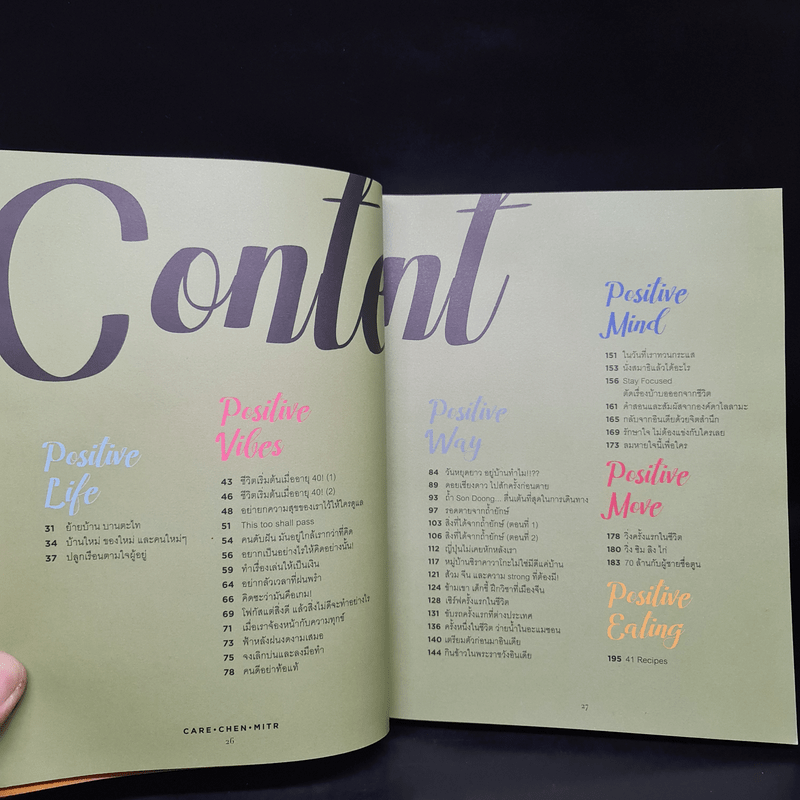 Content
Positive
Life
31 ย้ายบ้าน บานตะไท
34 บ้านใหม่ ของใหม่ และคนใหม่ๆ
37 ปลูกเรือนตามใจผู้อยู่
Positive
Vibes
43 ชีวิตเริ่มต้นเมื่ออายุ 40! (1)
46 ชีวิตเริ่มต้นเมื่ออายุ 40! (2)
48 อย่ายกความสุขของเราไว้ให้ใครดูแล
51 This too shall pass
54 คนดับฝัน มันอยู่ใกล้เรากว่าที่คิด
56 อยากเป็นอย่างไรให้คิดอย่างนั้น!
59 ทำเรื่องเล่นให้เป็นเงิน
64 อย่ากลัวเวลาที่ฝนพรำ
66 คิดซะว่ามันคือเกม!
69 โฟกัสแต่สิ่งดี แล้วสิ่งไม่ดีจะทำอย่างไร
71 เมื่อเราจ้องหน้ากับความทุกข์
73 ฟ้าหลังฝนงดงามเสมอ
75 จงเลิกบ่นและลงมือทำ
78 คนดีอย่าท้อแท้
CARE•CHEN•MITR
26
Positive
Way
84 วันหยุดยาว อยู่บ้านทำไม!!??
89 ดอยเชียงดาว ไปสักครั้งก่อนตาย
93 ถ้ำ Son Doong... ตื่นเต้นที่สุดในการเดินทาง
97 รอดตายจากถ้ำยักษ์
103 สิ่งที่ได้จากถ้ำยักษ์ (ตอนที่ 1)
106 สิ่งที่ได้จากถ้ำยักษ์ (ตอนที่ 2)
112 ญี่ปุ่นไม่เคยหักหลังเรา
117 หมู่บ้านชิราคาวาโกะไม่ใช่มีดีแค่บ้าน
121 ส้วม จีน และความ strong ที่ต้องมี!
124 ข้ามเขา เด็กขี้ ฝึกวิชาที่เมืองจีน
128 เซิร์ฟครั้งแรกในชีวิต
131 ขับรถครั้งแรกที่ต่างประเทศ
136 ครั้งหนึ่งในชีวิต ว่ายน้ำในอะแมซอน
140 เตรียมตัวก่อนมาอินเดีย
144 กินข้าวในพระราชวังอินเดีย
Positive
Mind
151 ในวันที่เราทวนกระแส
153 นั่งสมาธิแล้วได้อะไร
156 Stay Focused
ตัดเรื่องบ้าบอออกจากชีวิต
161 คำสอนและสัมผัสจากองค์ดาไลลามะ
165 กลับจากอินเดียด้วยจิตสำนึก
169 รักษาใจ ไม่ต้องแข่งกับใครเลย
173 ลมหายใจนี้เพื่อใคร
Positive
Move
178 วิ่งครั้งแรกในชีวิต
180 วิ่ง ชิม ลิง ไก่
183 70 ล้านกับผู้ชายชื่อตูน
Positive
Eating
195 41 Recipes
27